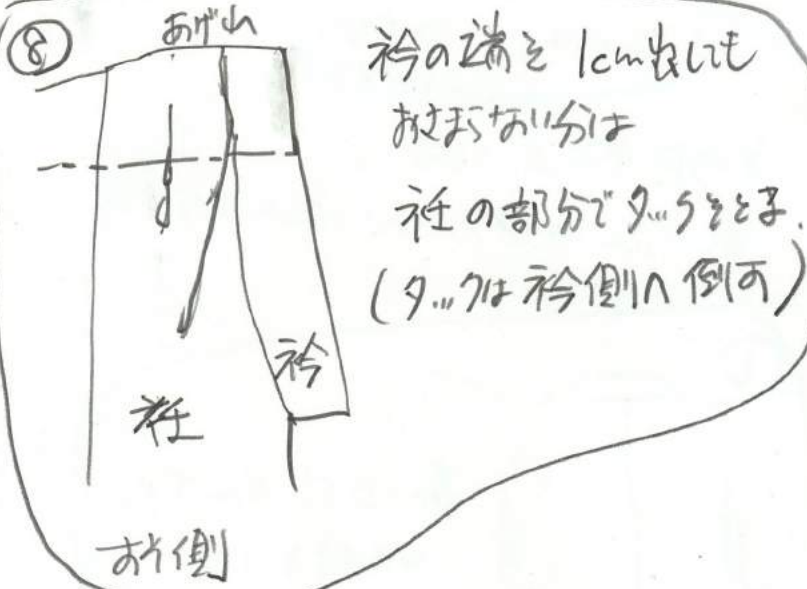 ⑧
あげ山
衿の端を1cm出しても
おさまらない分は
衽の部分でタックをとる.
(タックは衿側へ倒す)
衿
衽
すそ側